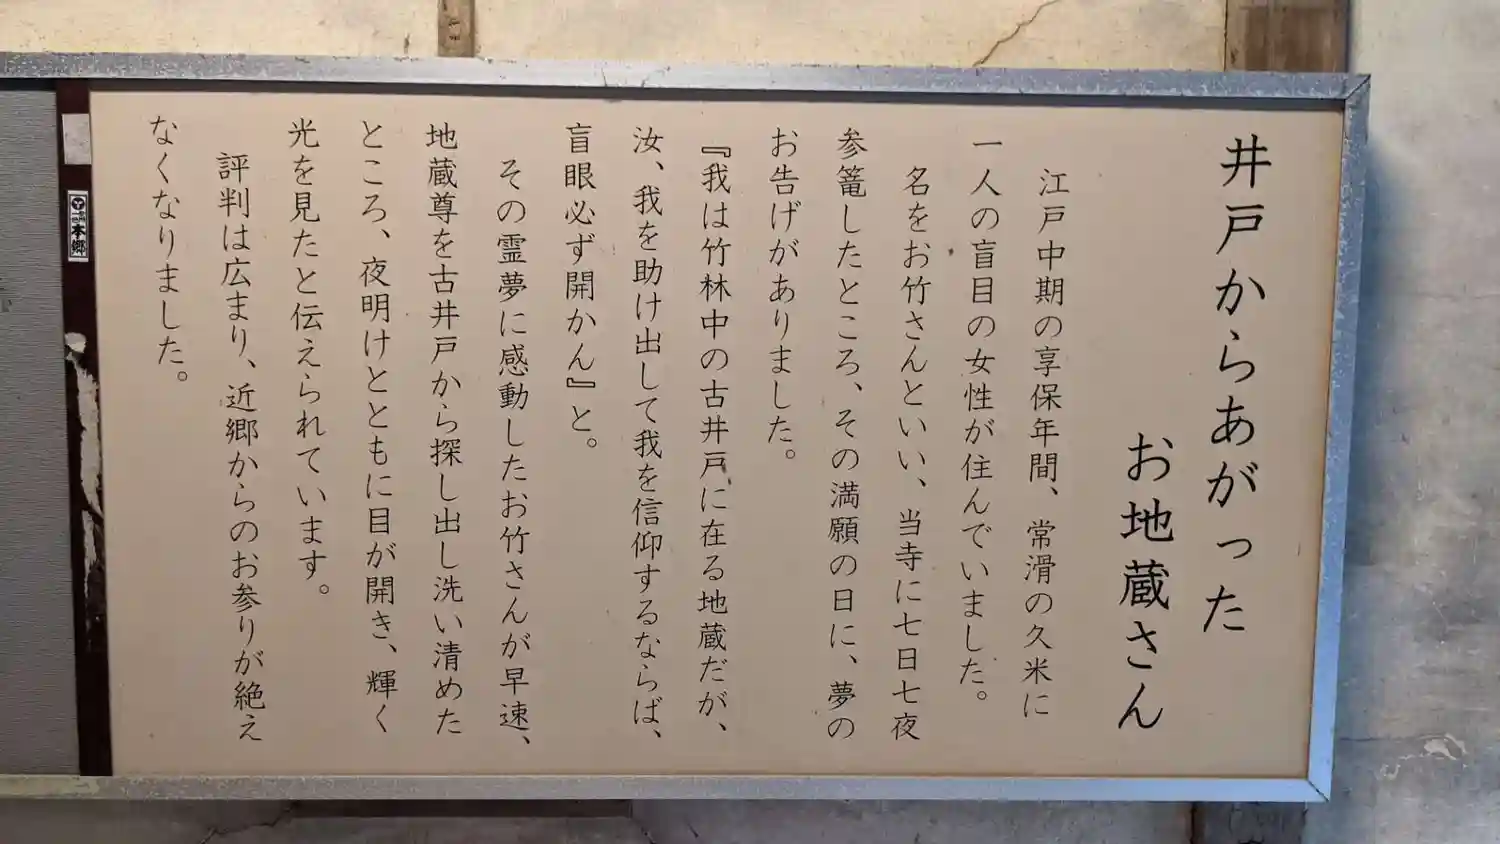 井戸からあがった
お地蔵さん
江戸中期の享保年間、常滑の久米に
一人の盲目の女性が住んでいました。
名をお竹さんといい、当寺に七日七夜
参篭したところ、その満願の日に、夢の
お告げがありました。
『我は竹林中の古井戸に在る地蔵だが、
汝、我を助け出して我を信仰するならば、
盲眼必ず開かん』と。
その霊夢に感動したお竹さんが早速、
地蔵尊を古井戸から探し出し洗い清めた
ところ、夜明けとともに目が開き、輝く
光を見たと伝えられています。
評判は広まり、近郷からのお参りが絶え
なくなりました。
本郷